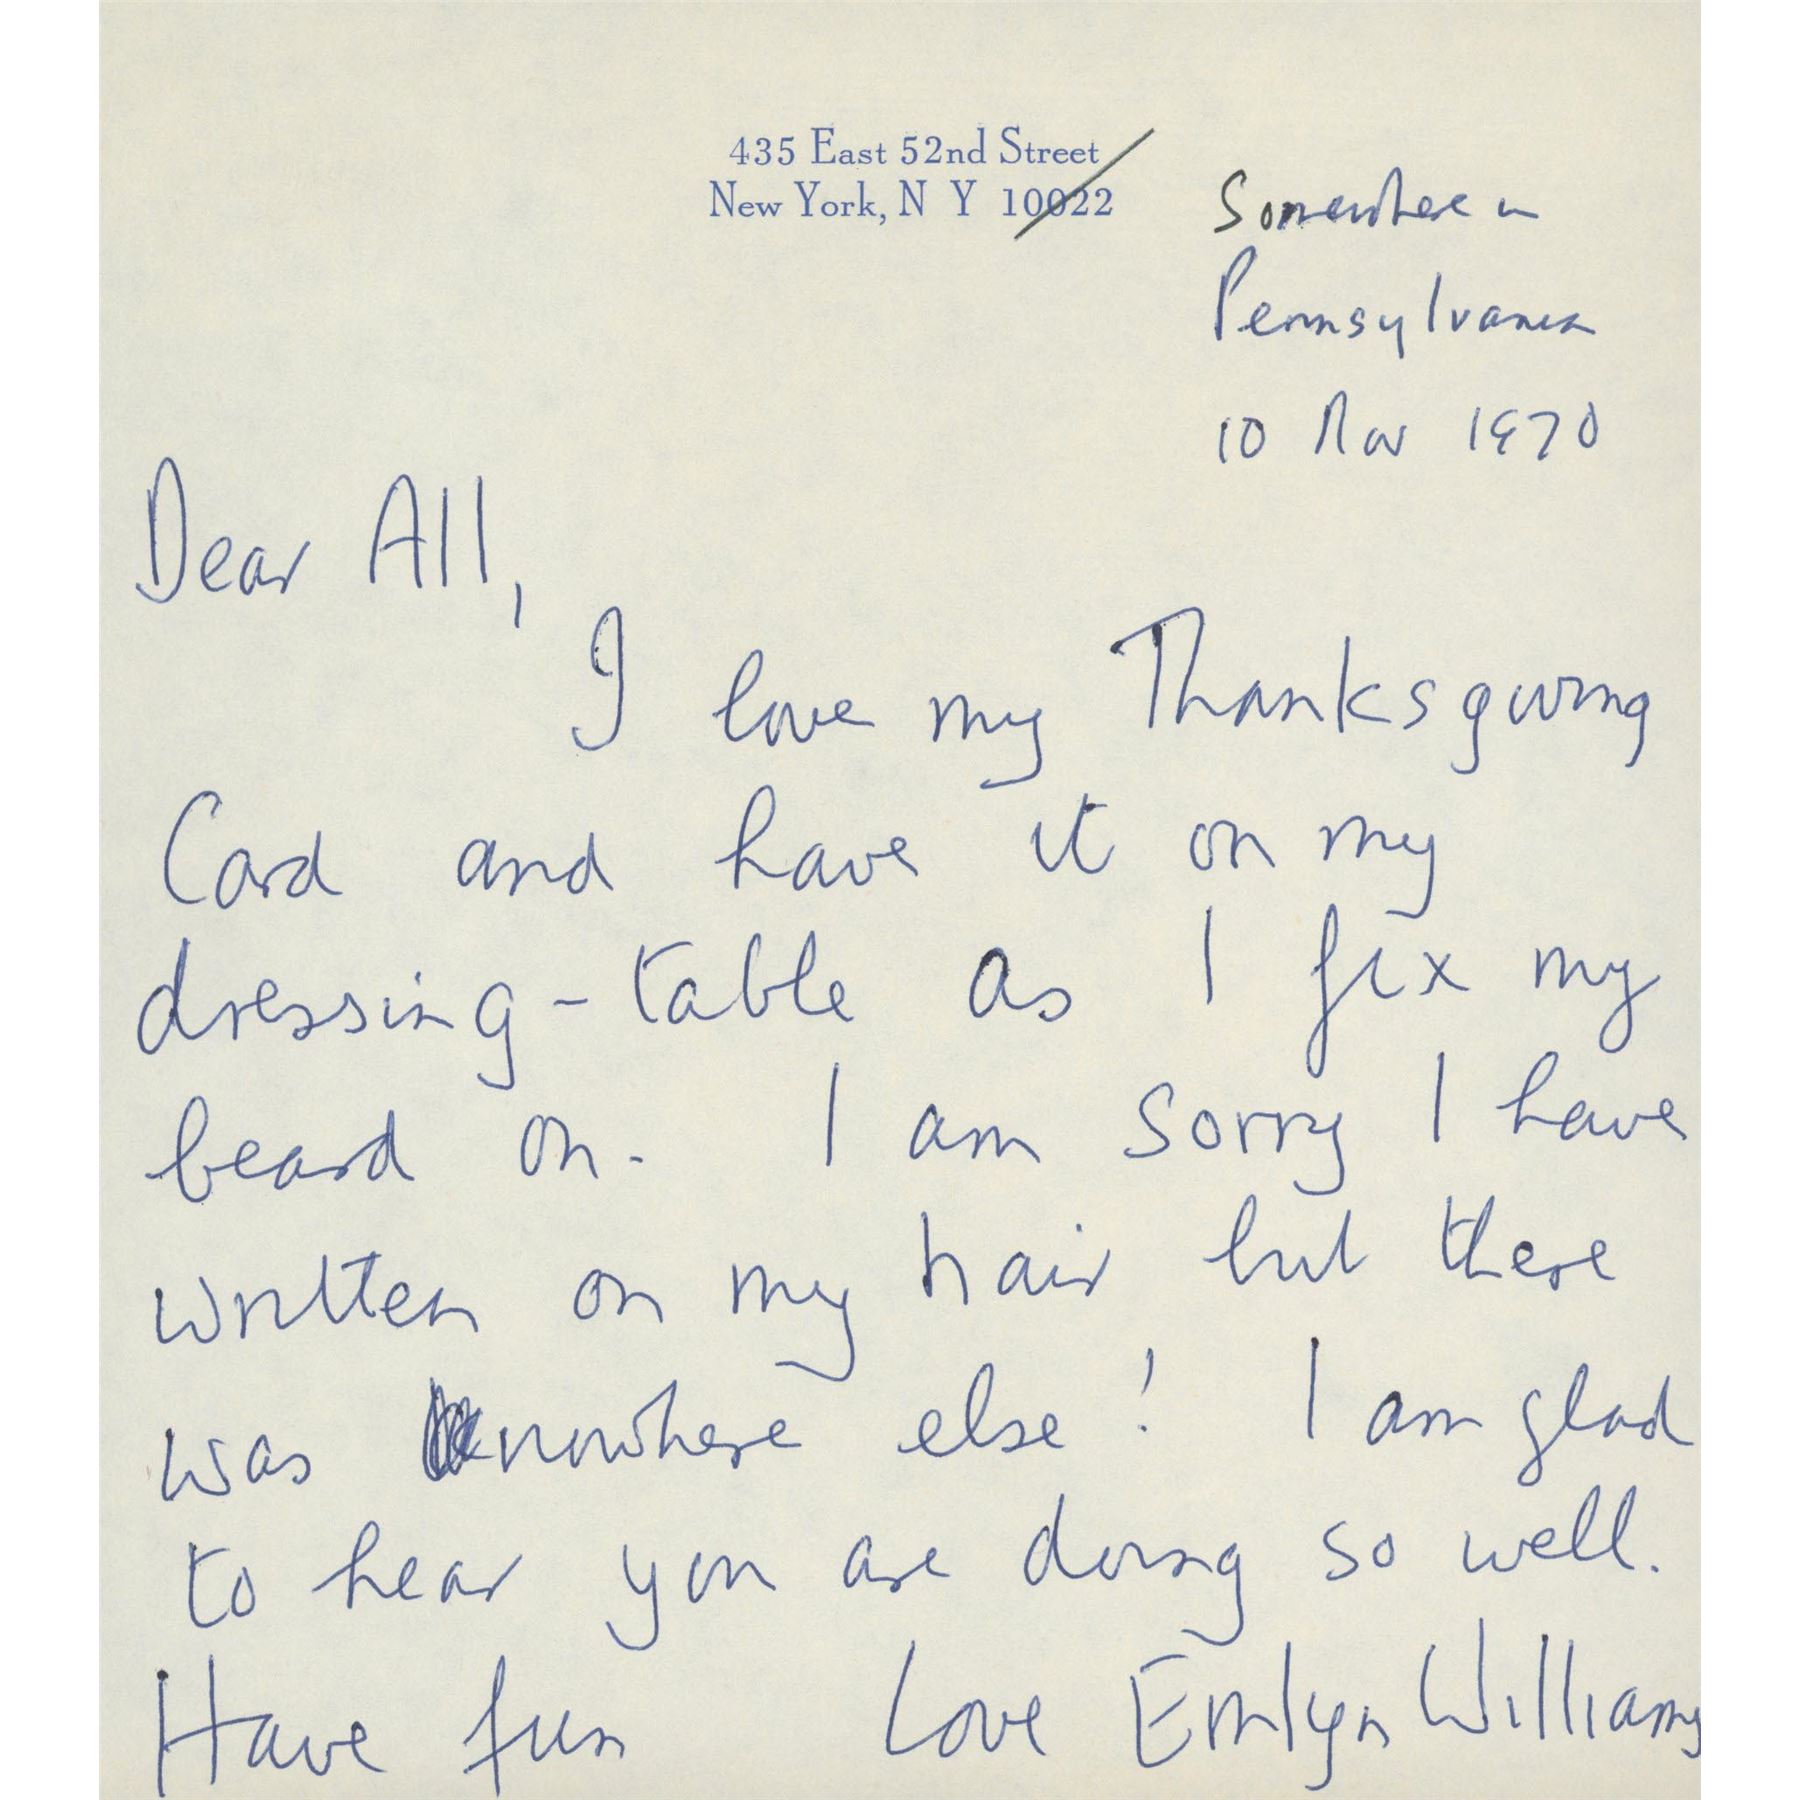 435 East 52nd Street
New York, N Y 10022
Somewhere in
Pennsylvania
10 Nov 1970
Dear All,
I love my Thanksgiving
Card and have it on my
dressing-table as I fix my
beard on. I am sorry I have
written on my hair but there
was nowhere else! I am glad
to hear you are doing so well.
Have fun Love Emlyn Williams